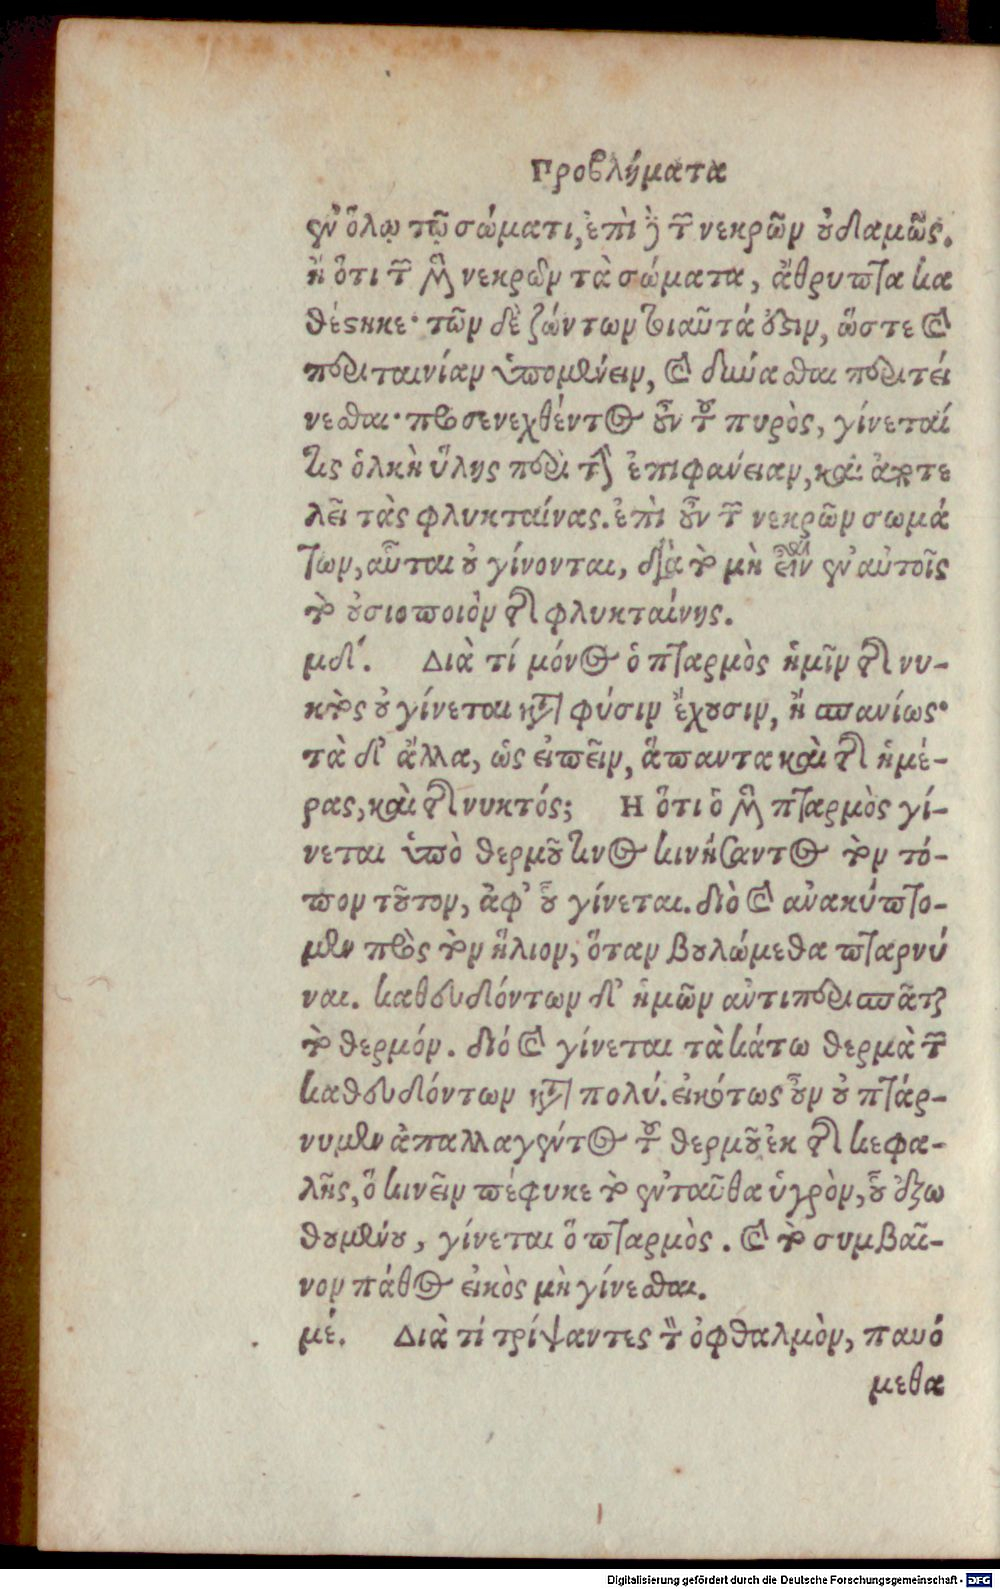 Προβλήματα
ἐν ὅλῳ τῷ σώματι, ἐπὶ δὲ τῶν νεκρῶν οὐδαμῶς.
ἢ ὅτι τῶν μὲν νεκρῶν τὰ σώματα, ἄθρυπτα κα
θέστηκε· τῶν δὲ ζώντων τοιαῦτά ἐστιν, ὥστε καὶ
περιταινίαν ὑπομένειν, καὶ δύνασθαι περιτεί
νεσθαι· προσενεχθέντος οὖν τοῦ πυρὸς, γίνεταί
τις ὁλκὴ ὕλης περὶ τὴν ἐπιφάνειαν, καὶ ἀποτε
λεῖ τὰς φλυκταίνας. ἐπὶ οὖν τῶν νεκρῶν σωμά
των, αὗται οὐ γίνονται, διὰ τὸ μὴ εἶναι ἐν αὐτοῖς
τὸ οὐσιοποιὸν τῆς φλυκταίνης.
μδ΄. Διὰ τί μόνος ὁ πταρμὸς ἡμῖν τῆς νυ-
κτὸς οὐ γίνεται κατὰ φύσιν ἔχουσιν, ἢ σπανίως·
τὰ δ' ἄλλα, ὡς εἰπεῖν, ἅπαντα καὶ τῆς ἡμέ-
ρας, καὶ τῆς νυκτός; Η ὅτι ὁ μὲν πταρμὸς γί-
νεται ὑπὸ θερμοῦ τινος κινήσαντος τὸν τό-
πον τοῦτον, ἀφ' οὗ γίνεται. διὸ καὶ ἀνακύπτο-
μεν πρὸς τὸν ἥλιον, ὅταν βουλώμεθα πταρνύ
ναι. καθευδόντων δ' ἡμῶν ἀντιπερισπᾶται
τὸ θερμόν. διό καὶ γίνεται τὰ κάτω θερμὰ τῶν
καθευδόντων κατὰ πολύ. εἰκότως οὖν οὐ πτάρ-
νυμεν ἀπαλλαγέντος τοῦ θερμοῦ ἐκ τῆς κεφα-
λῆς, ὃ κινεῖν πέφυκε τὸ ἐνταῦθα ὑγρὸν, οὗ ἐξω
θουμένου, γίνεται ὁ πταρμὸς. καὶ τὸ συμβαῖ-
νον πάθος εἰκὸς μὴ γίνεσθαι.
μέ. Διὰ τί τρίψαντες τὸν ὀφθαλμὸν, παυό
μεθα
Digitalisierung gefördert durch die Deutsche Forschungsgemeinschaft - DFG